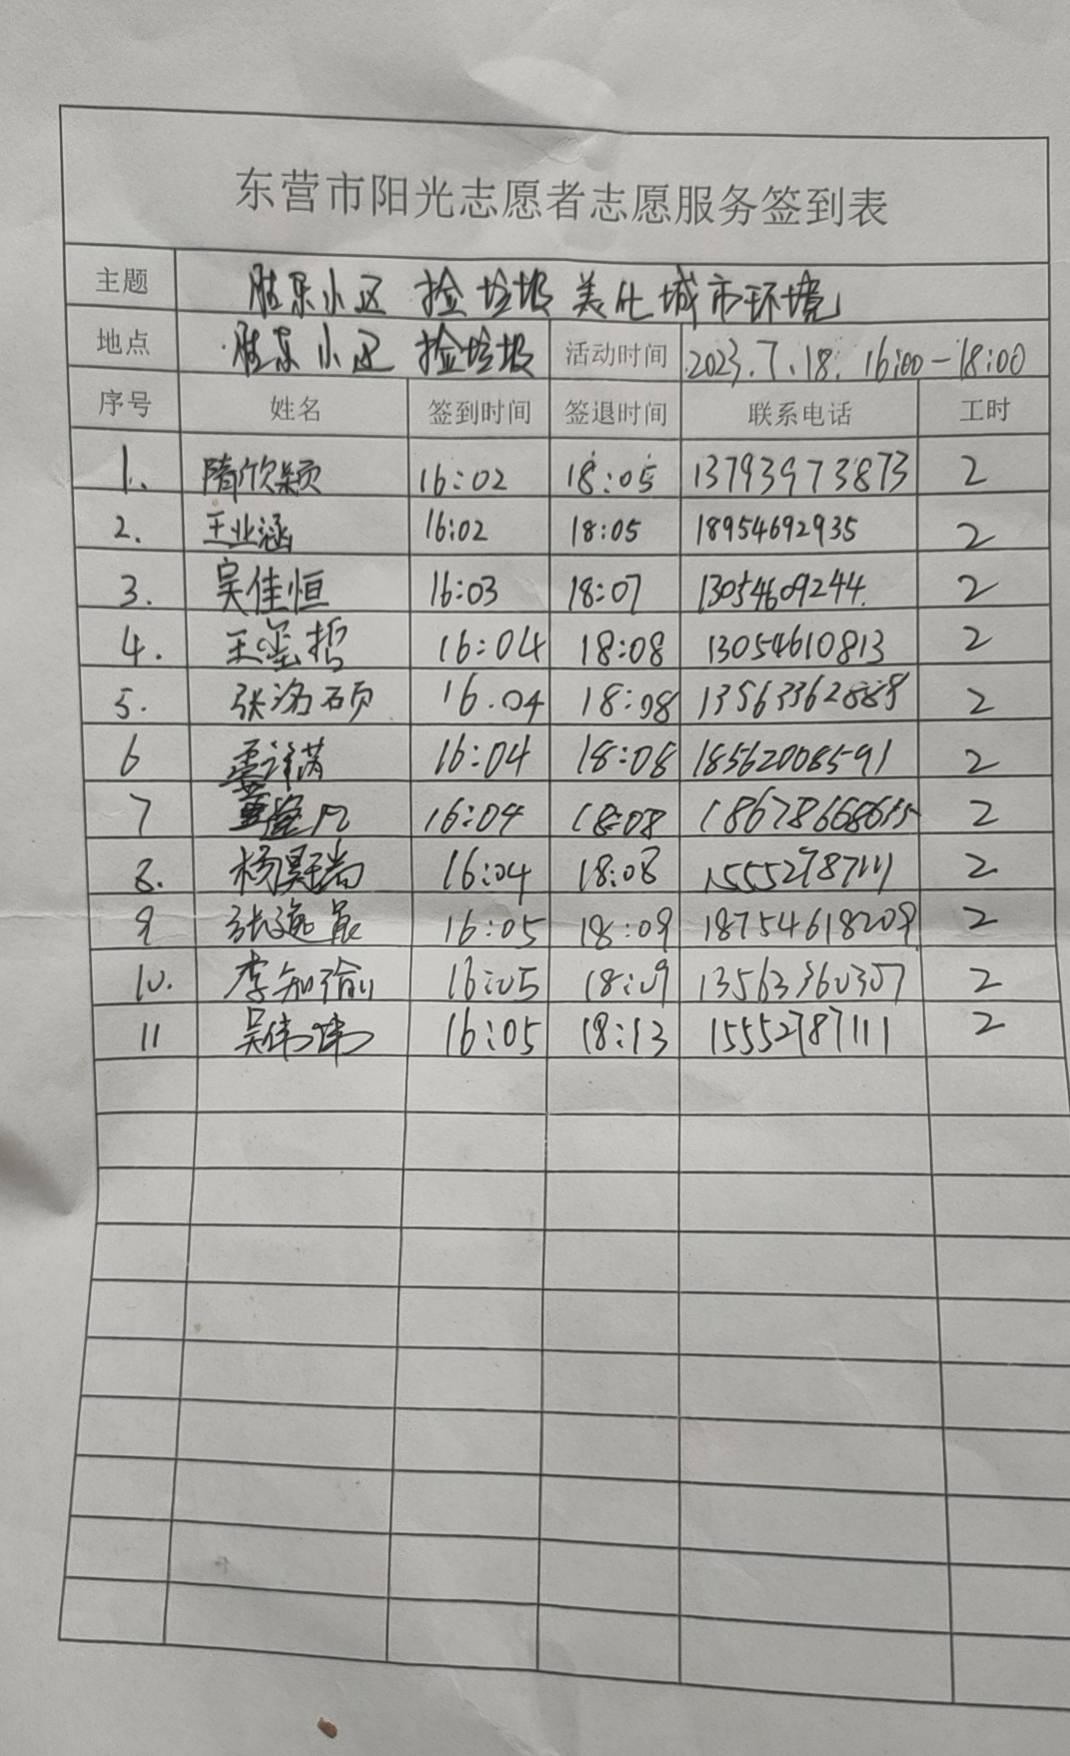 东营市阳光志愿者志愿服务签到表
主题 胜东小区 捡垃圾 美化城市环境
地点 胜东小区 捡垃圾 活动时间 2023.7.18. 16:00-18:00
序号 姓名 签到时间 签退时间 联系电话 工时
1. 隋欣颖 16:02 18:05 13793973873 2
2. 王业涵 16:02 18:05 18954692935 2
3. 吴佳恒 16:03 18:07 13054609244. 2
4. 王玺哲 16:04 18:08 13054610813 2
5. 张洺硕 16.04 18:08 13563362888 2
6 16:04 18:08 18562008591 2
7 16:04 18:08 2
8. 杨昊瑞 16:04 18:08 15552787111 2
9 张逸宸 16:05 18:09 18754618209 2
10. 李知瑜 16:05 18:09 13563360307 2
11 吴伟伟 16:05 18:13 15552787111 2